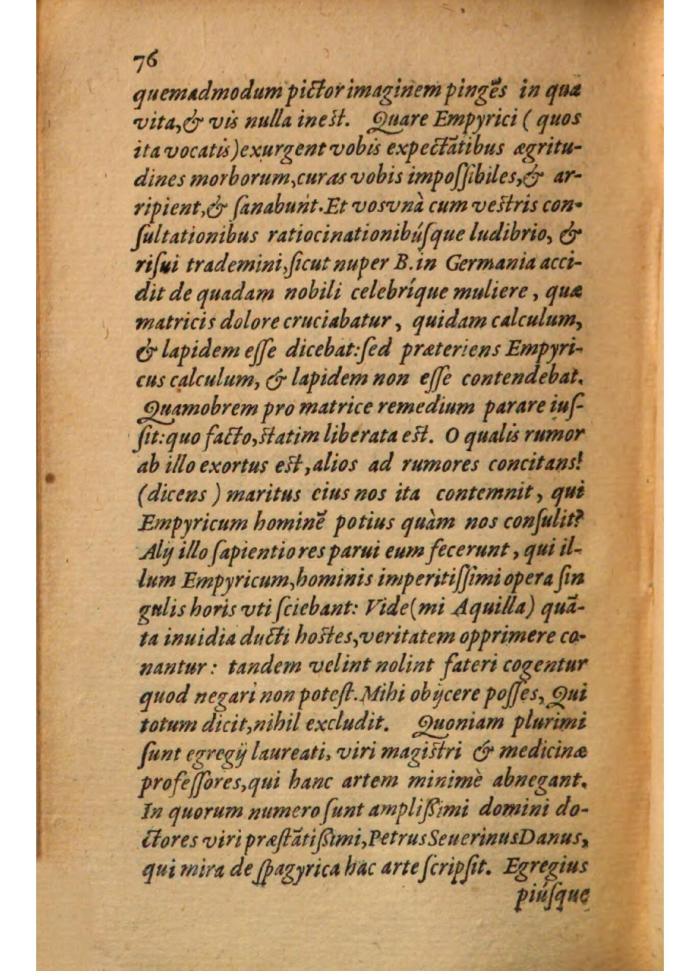 76
quemadmodum pictor imaginem pingẽs in qua
vita, & vis nulla inest. Quare Empyrici ( quos
ita vocatis ) exurgent vobis expectãtibus ægritu-
dines morborum, curas vobis impossibiles, & ar-
ripient, & sanabunt. Et vos vnà cum vestris con-
sultationibus ratiocinationibúsque ludibrio, &
risui trademini, sicut nuper B. in Germania acci-
dit de quadam nobili celebríque muliere, quæ
matricis dolore cruciabatur, quidam calculum,
& lapidem esse dicebat: sed præteriens Empyri-
cus calculum, & lapidem non esse contendebat.
Quamobrem pro matrice remedium parare ius-
sit: quo facto, statim liberata est. O qualis rumor
ab illo exortus est, alios ad rumores concitans!
(dicens ) maritus eius nos ita contemnit, qui
Empyricum hominẽ potius quàm nos consulit?
Alij illo sapientiores parui eum fecerunt, qui il-
lum Empyricum, hominis imperitissimi opera sin
gulis horis vti sciebant: Vide (mi Aquilla) quã-
ta inuidia ducti hostes, veritatem opprimere co-
nantur : tandem velint nolint fateri cogentur
quod negari non potest. Mihi obijcere posses, Qui
totum dicit, nihil excludit. Quoniam plurimi
sunt egregij laureati, viri magistri & medicinæ
professores, qui hanc artem minimè abnegant.
In quorum numero sunt amplissimi domini do-
ctores viri præstãtissimi, Petrus Seuerinus Danus,
qui mira de spagyrica hac arte scripsit. Egregius
piúsque